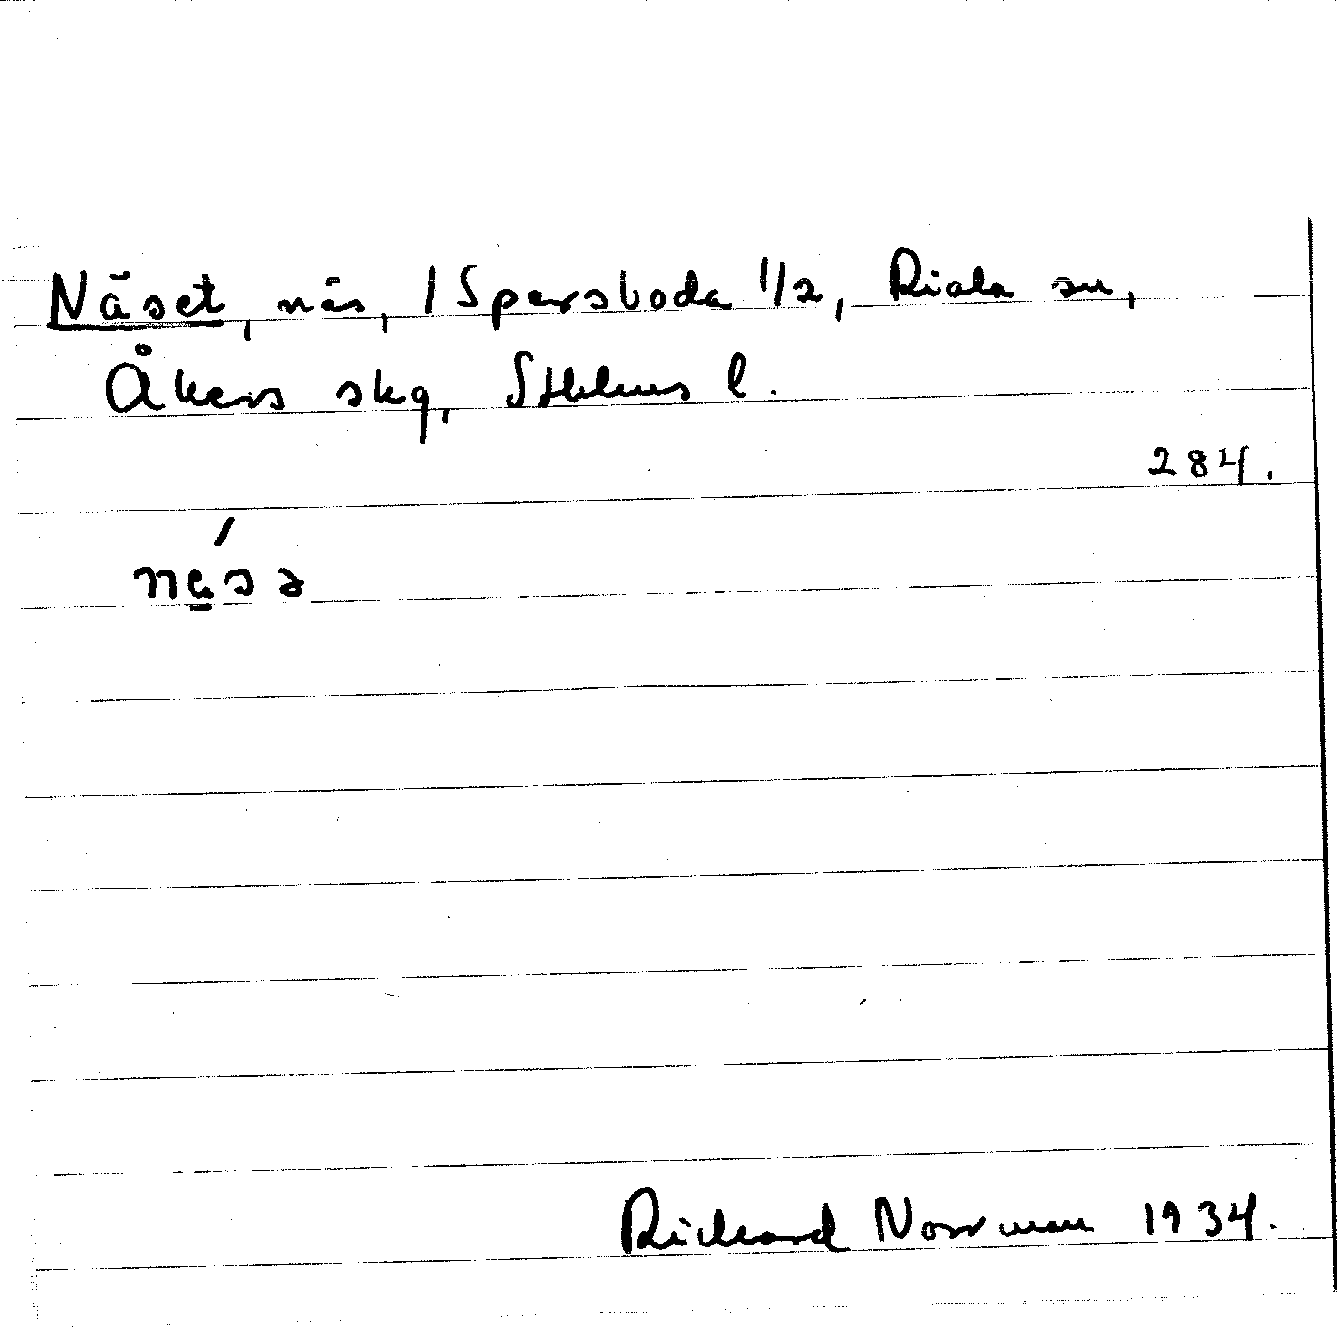 Näset, näs, I Sparsboda 1/2, Riala sn,
Åkers skg, Sthlms l.
284.
nę́sə
Richard Norrman 1934.